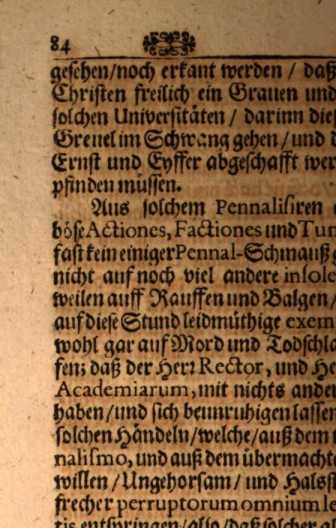 84
gesehen/noch erkant werden / daß
Christen freilich ein Grauen und
solchen Universitäten / darinn dies
Greuel im Schwang gehen/und d
Ernst und Eyffer abgeschafft wer
pfinden müssen.
Aus solchem Pennalisiren
böse Actiones, Factiones und Tun
fast kein einiger Pennal-Schmauß g
nicht auf noch viel andere insole
weilen auff Rauffen und Balgen/
auf diese Stund leidmüthige exem
wohl gar auf Mord und Todschla
fen; daß der Herr Rector, und He
Academiarum, mit nichts ander
haben/und sich beunruhigen lassen
solchen Händeln/welche/auß dem
nalismo, und auß dem übermachte
willen /Ungehorsam/ und Halsst
frecher perruptorum omnium le
tis entspringen/also/daß solcher